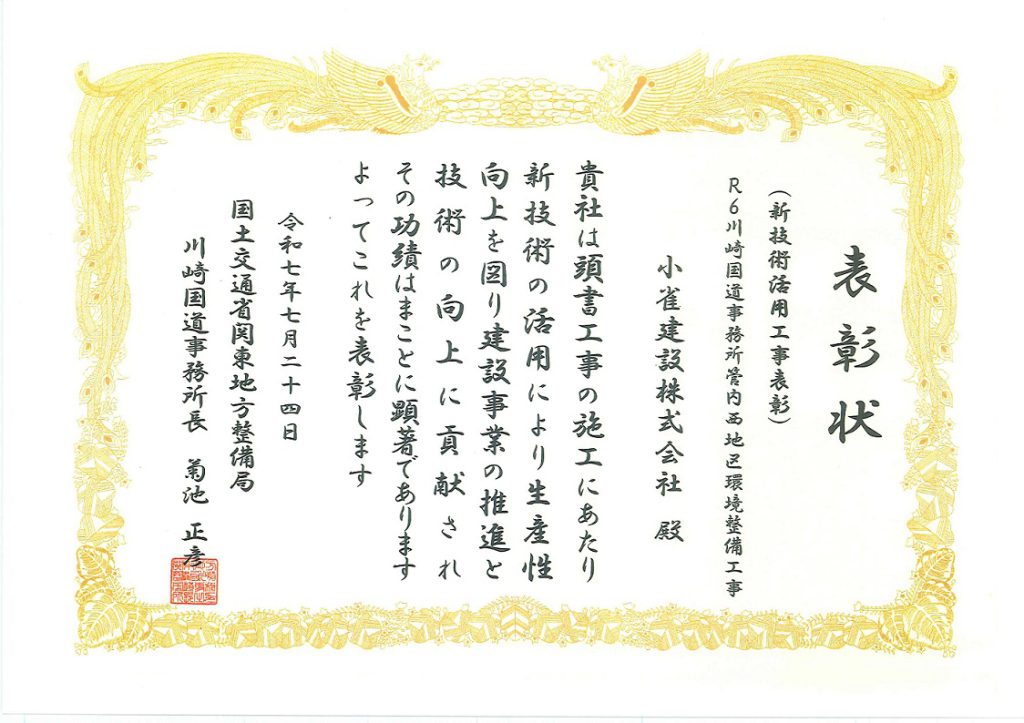 表彰状
(新技術活用工事表彰)
R6川崎国道事務所管内西地区環境整備工事
小雀建設株式会社 殿
貴社は頭書工事の施工にあたり
新技術の活用により生産性
向上を図り建設事業の推進と
技術の向上に貢献され
その功績はまことに顕著であります
よってこれを表彰します
令和七年七月二十四日
国土交通省関東地方整備局
川崎国道事務所長 菊池 正彦